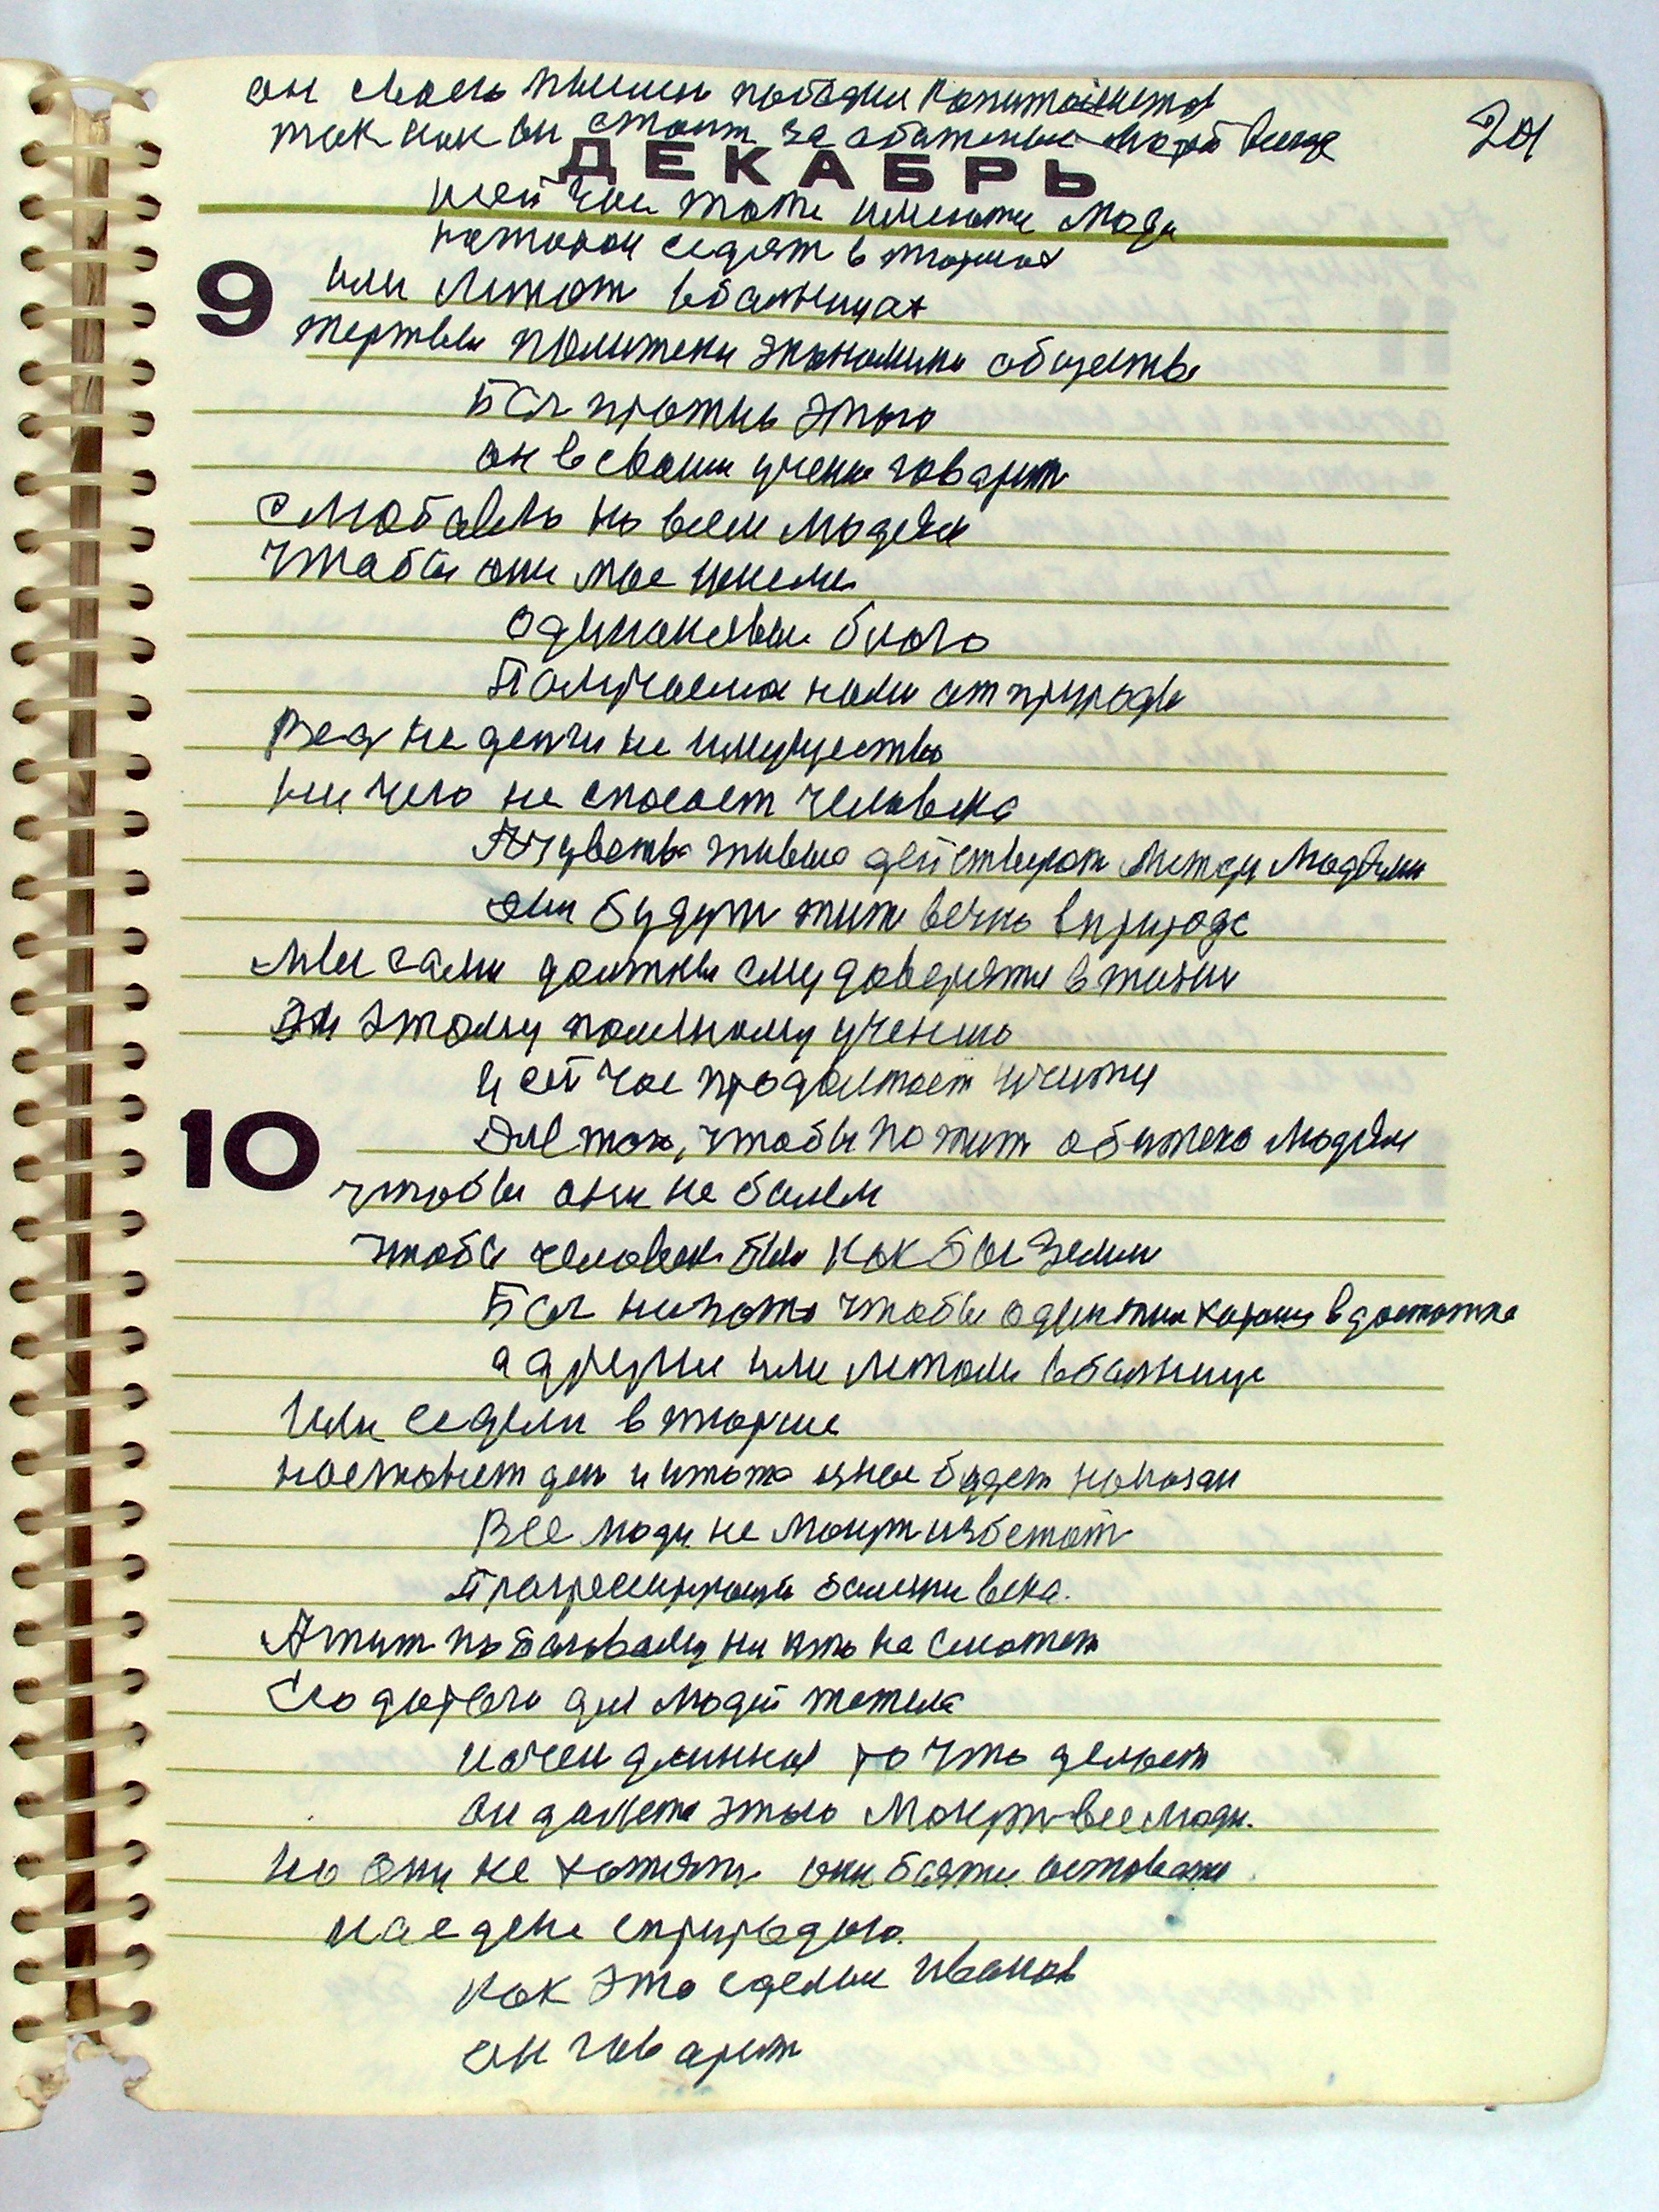 он своем мыслей победил капиталистов
201
так как он стоит за обиженых людей всегда
ДЕКАБРЬ
и сей час тоже именоти люди
которои седят в тюрмах
9
или лежат в больницах
жертвы политеки экономики общества
Бог против этого
он в своим учени говарит
с любовью ко всем людям
чтобы они мое имели
одинаковые благо
Получаемая нами от природы
Вед не денги не имущество
ни чего не спосает человека
А чувства живые действуют между людьми
они будут жит вечно в природе
мы сами должны ему доверяти в жизни
этому полному учению
и сей час продолжает учити
10
Для того, чтобы по жит обижено людям
чтобы они не болели
чтобы человек был как бы земли
Бог не хоте чтобы один жил хорошо в достатке
а другие или лежали в больнице
Или седели в тюрме
настанет ден и кто то из нас будет наказан
Все люди не могут избежат
Прагресирующей болезни века.
А жит по Баговому ни кто не сможет
Его дорога для людей тежела
и очен длинная то что делает
он делате этого могут все люди.
но они не хотять они боятся остоватся
на едене с природою.
как это сделал Иванов
он говарит